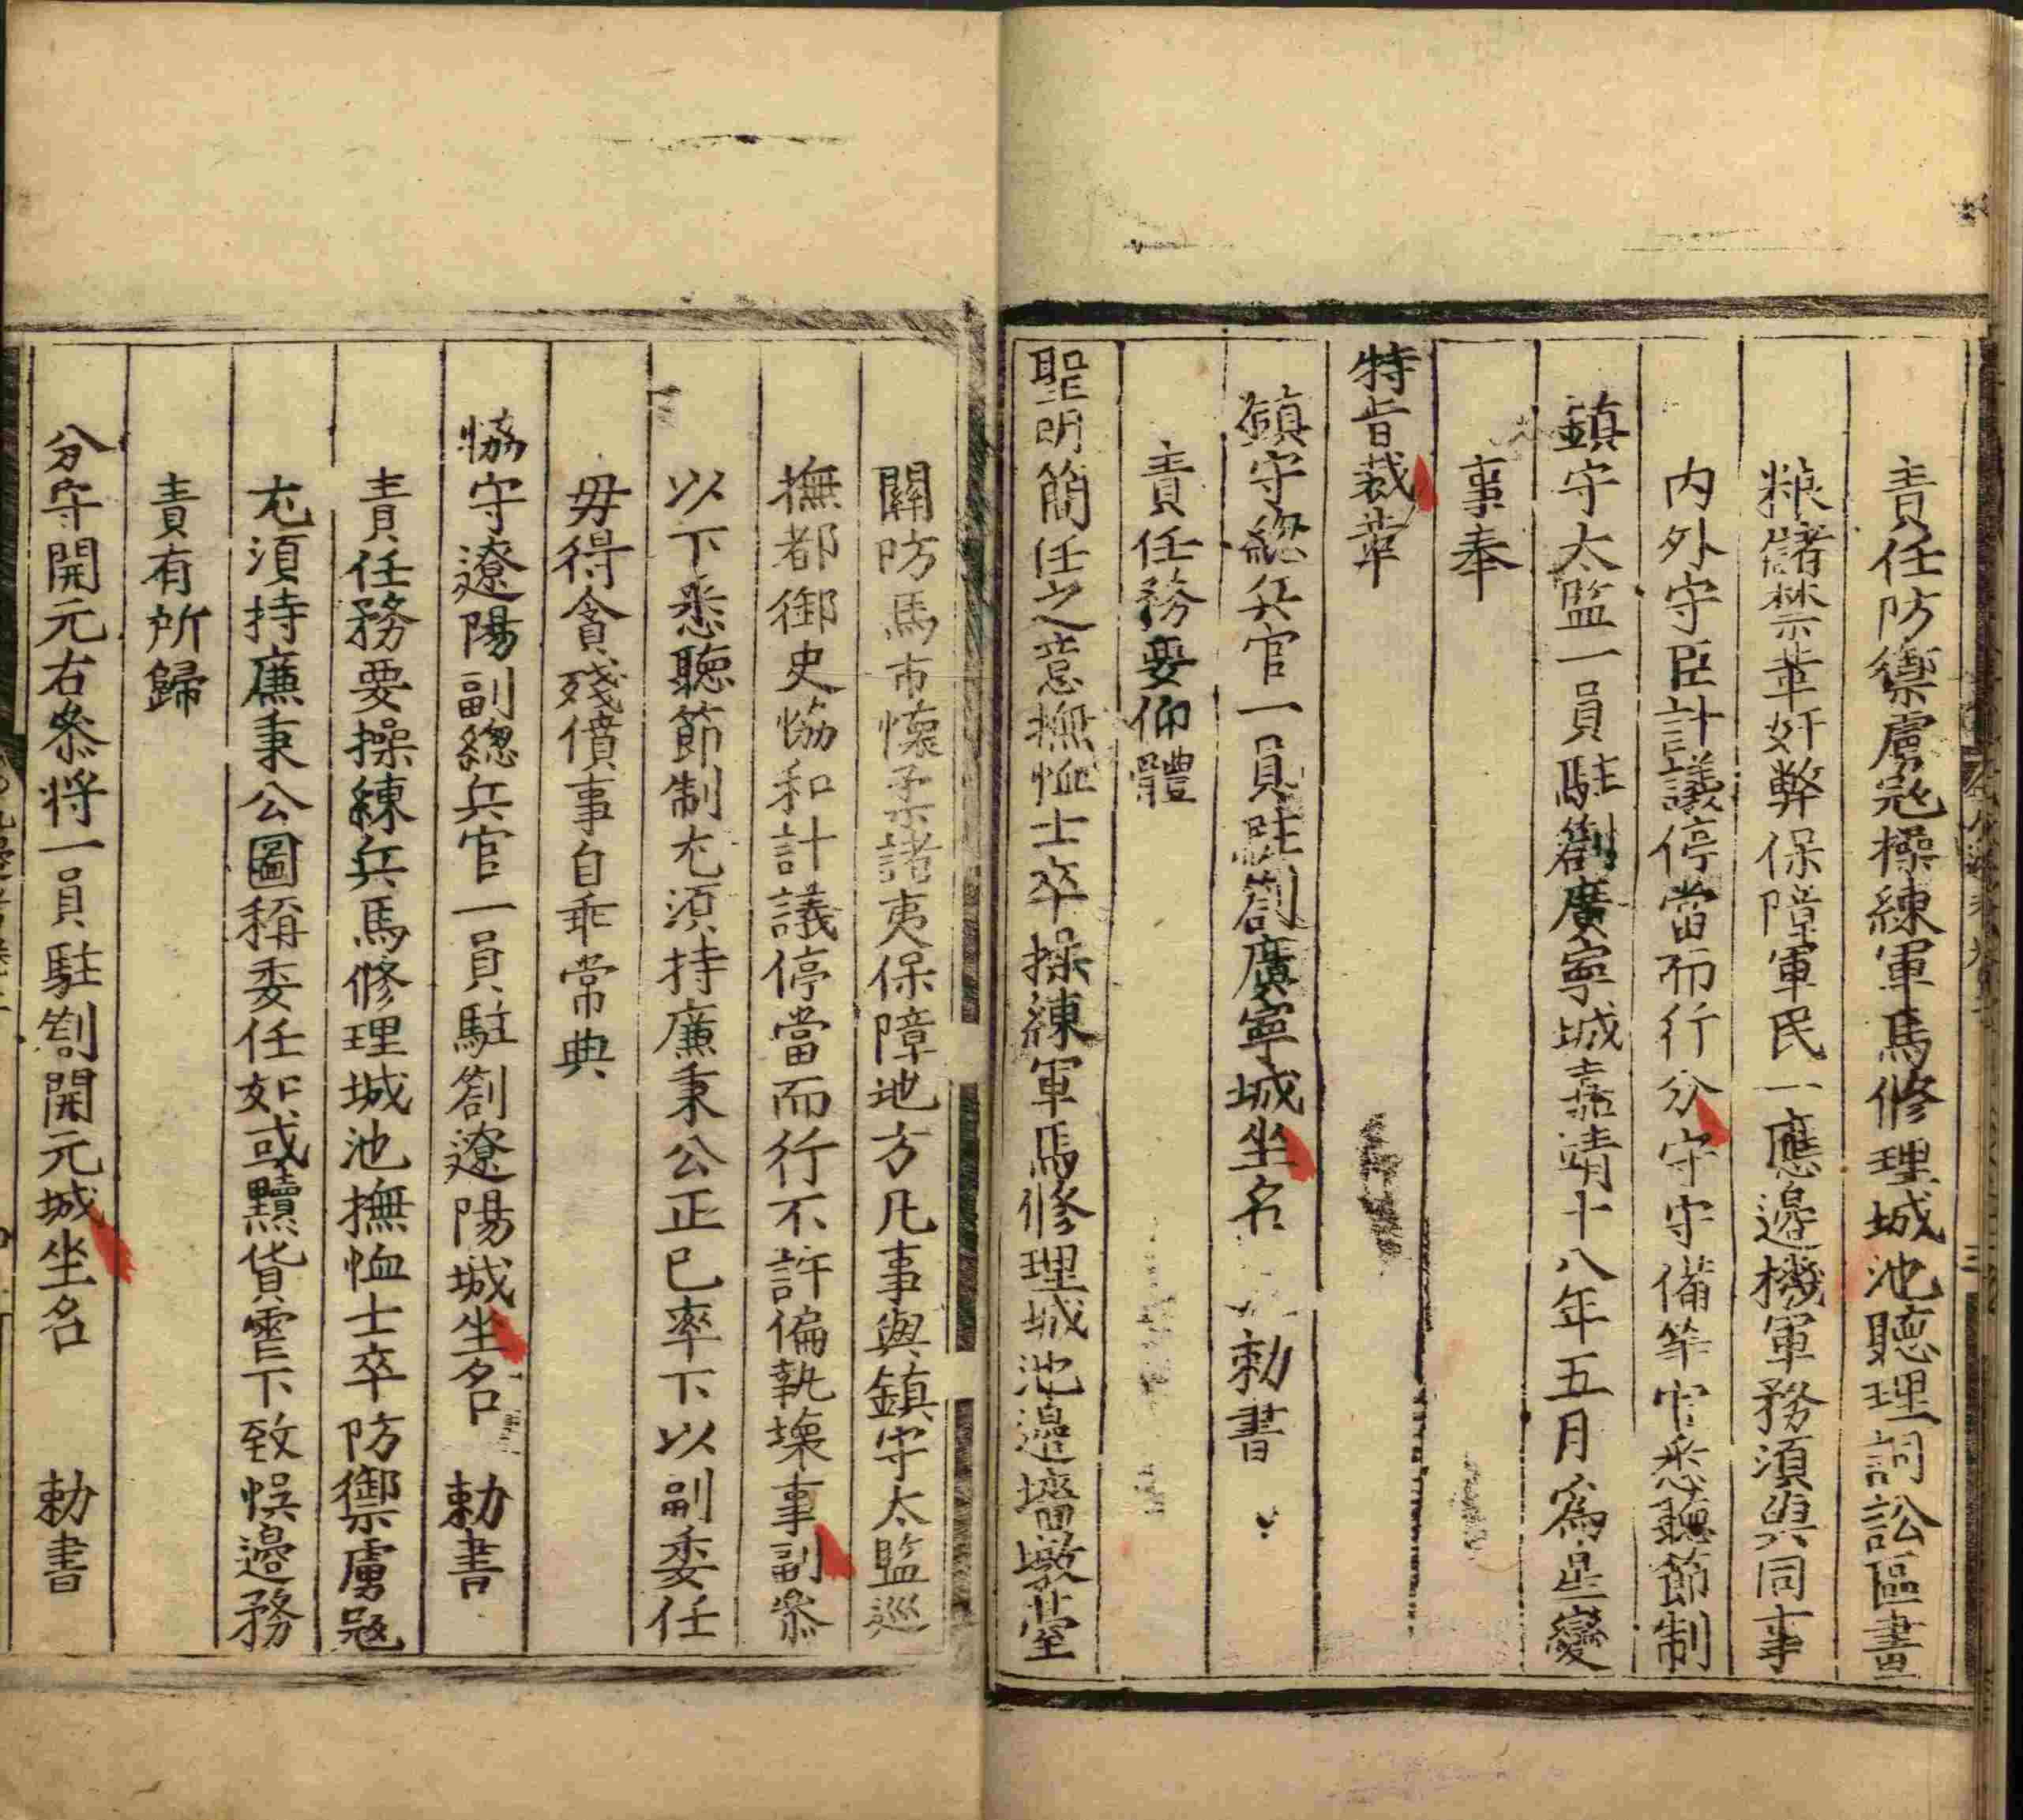 責任防禦虜寇操練軍馬修理城池聽理詞訟區畫
粮儲禁革奸弊保障軍民一應邊機軍務須與同事
内外守臣計議停當而行分守守備等官悉聽節制
鎮守太監一員駐劄廣寧城嘉靖十八年五月爲星變
事奉
特旨裁革
鎮守總兵官一員駐劄廣寧城坐名 勅書
責任務要仰體
聖明簡任之意撫恤士卒操練軍馬修理城池邊墻墩臺
關防馬市懷柔諸夷保障地方凡事與鎮守太監巡
撫都御史恊和計議停當而行不許偏執壞事副叅
以下悉聽節制尤須持廉秉公正已率下以副委任
毋得貪殘僨事自乖常典
恊守遼陽副總兵官一員駐劄遼陽城坐名 勅書
責任務要操練兵馬修理城池撫恤士卒防禦虜寇
尤須持廉秉公圖稱委任如或黷貨虐下致悞邊務
責有所歸
分守開元右叅将一員駐劄開元城坐名 勅書